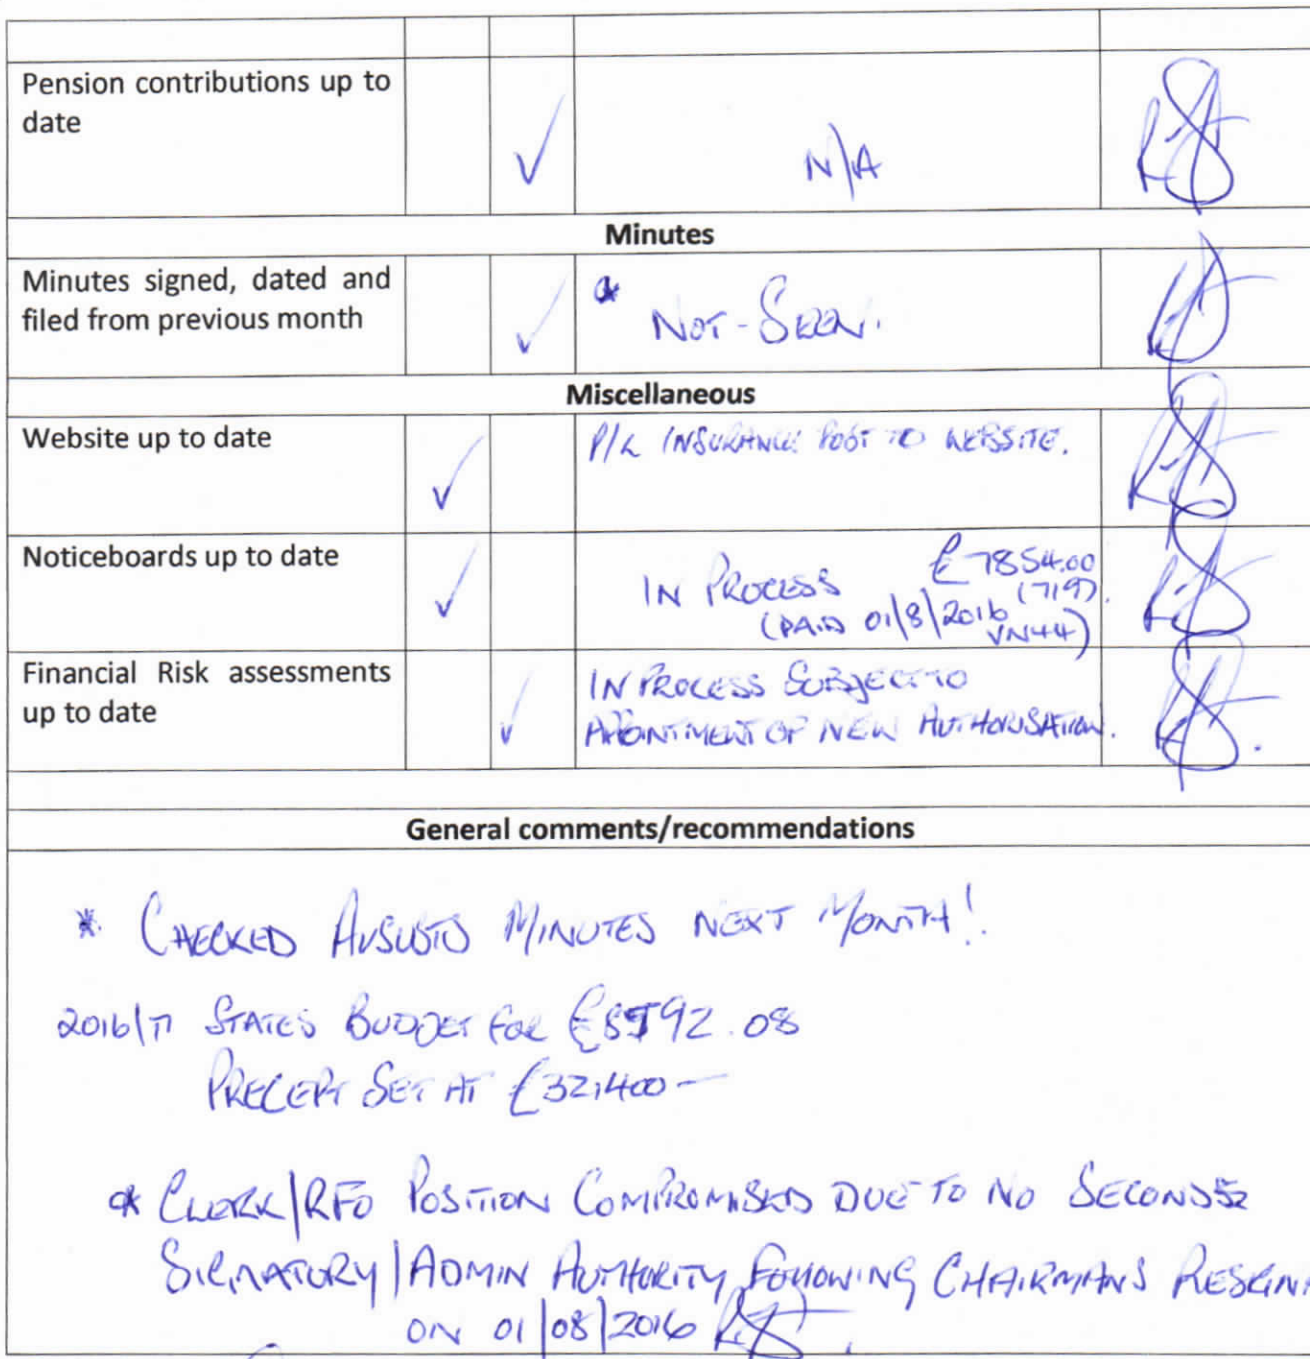 Pension contributions up to
date
✓ N/A
Minutes
Minutes signed, dated and
filed from previous month
✓ * NOT-SEEN.
Miscellaneous
Website up to date
✓ P/L INSURANCE POST TO WEBSITE.
Noticeboards up to date
✓ IN PROCESS £7854.00
(719).
(PAID 01/8/2016
VN44)
Financial Risk assessments
up to date
✓ IN PROCESS SUBJECT TO
APPOINTMENT OF NEW AUTHORISATION.
General comments/recommendations
* CHECKED AUGUSTS MINUTES NEXT MONTH!
2016/17 STATES BUDGET FOR
PRECEPT SET AT £32,400 -
* CLERK/RFO POSITION COMPROMISED DUE TO NO SECOND
SIGNATORY/ADMIN AUTHORITY FOLLOWING CHAIRMANS RESIGNA
ON 01/08/2016